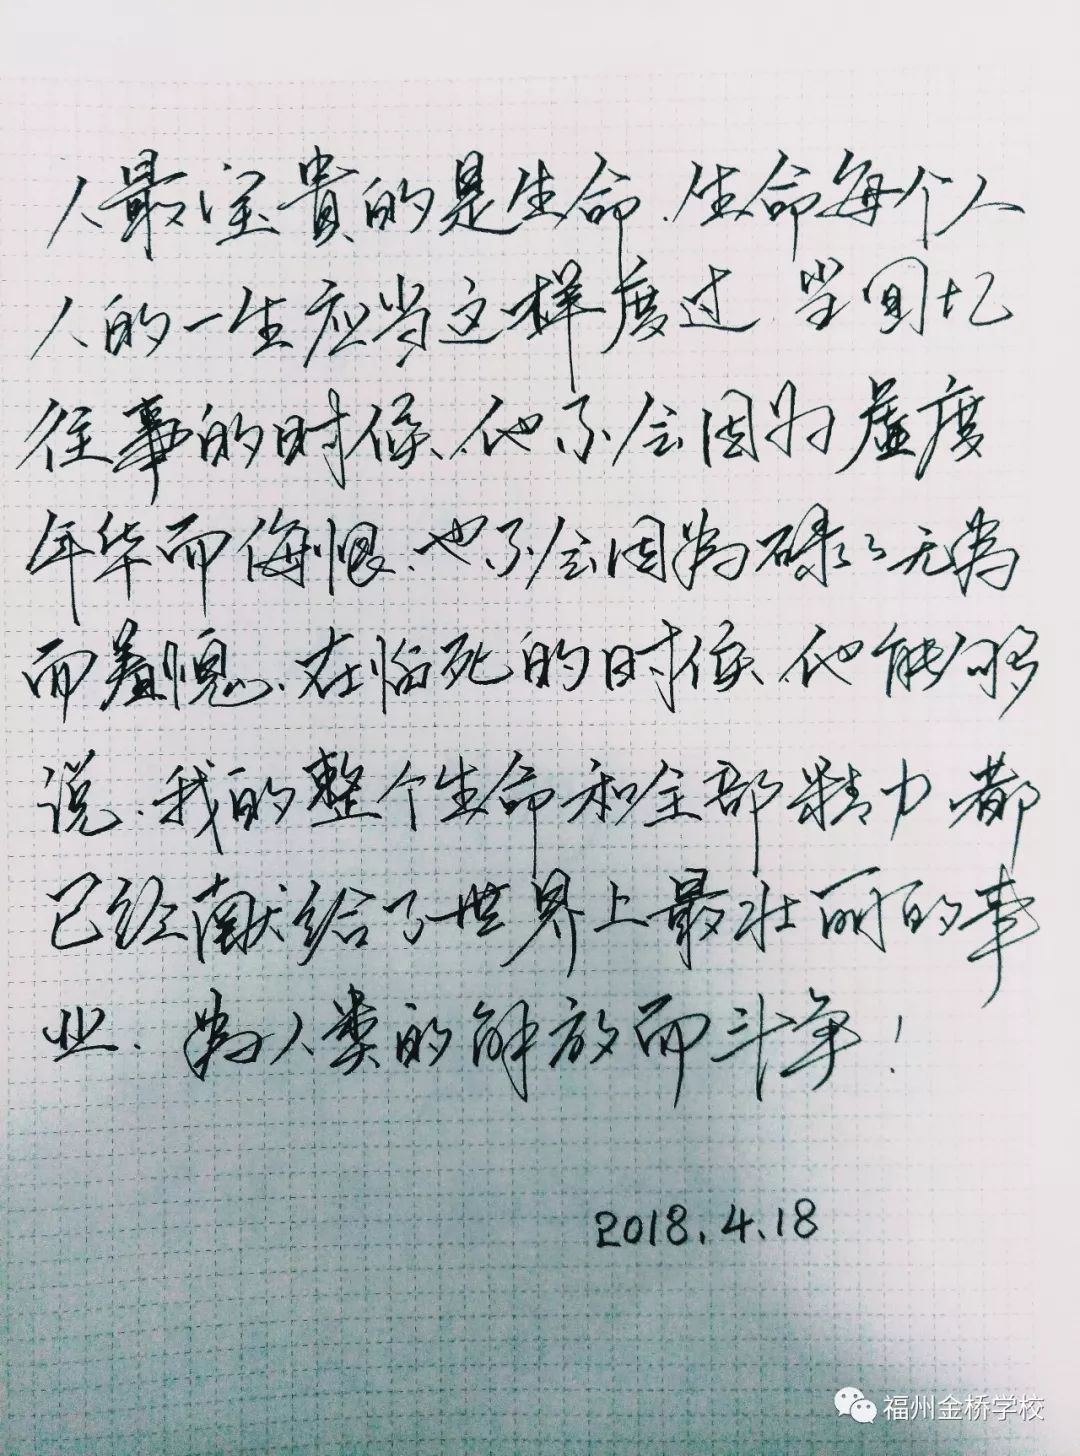 人最宝贵的是生命、生命每个人
人的一生应当这样度过 当回忆
往事的时候、他不会因为虚度
年华而悔恨、也不会因为碌々无为
而羞愧、在临死的时候、他能够
说、我的整个生命和全部精力都
已经献给了世界上最壮丽的事
业、为人类的解放而斗争！
2018.4.18
福州金桥学校